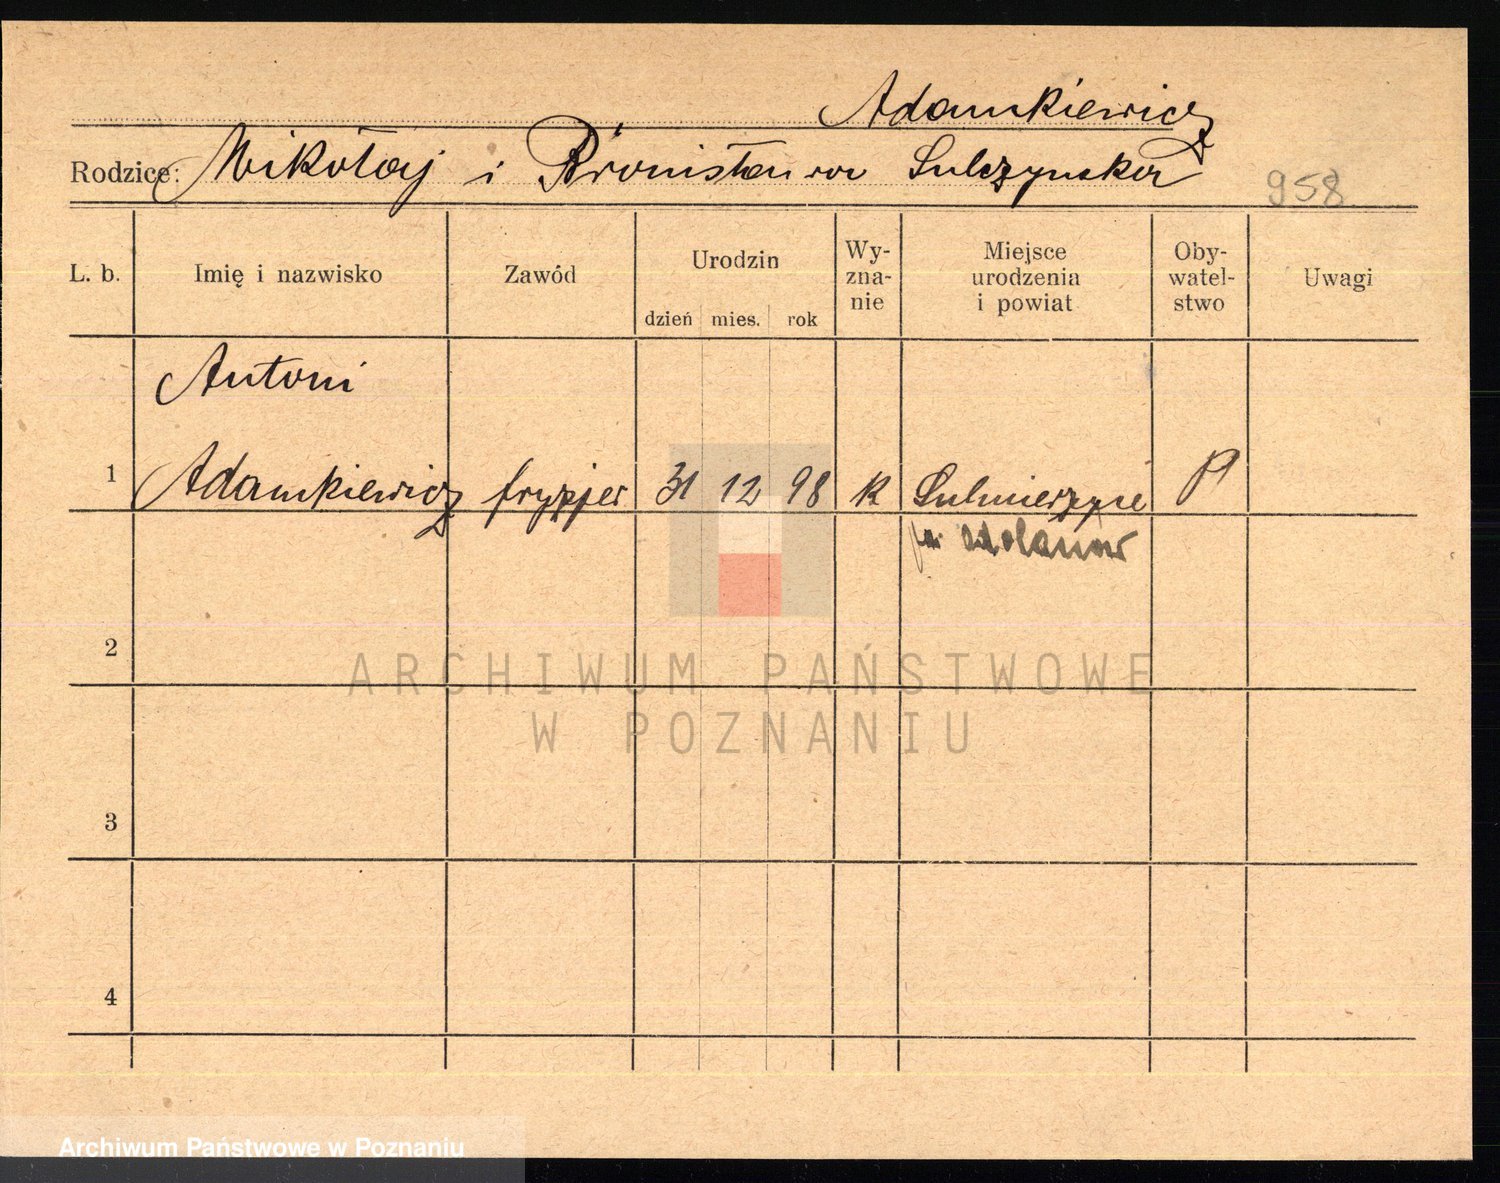 Adamkiewicz
Rodzice: Mikołaj i Bronisława Sulczynska
958
L. b.
Imię i nazwisko
Zawód
Urodzin
dzień mies. rok
Wy-
zna-
nie
Miejsce
urodzenia
i powiat
Oby-
watel-
stwo
Uwagi
Antoni
1 Adamkiewicz fryzjer 31 12 98 K Sulmierzyce P
Adolanow
2
3
4
ARCHIWUM PAŃSTWOWE
W POZNANIU
Archiwum Państwowe w Poznaniu